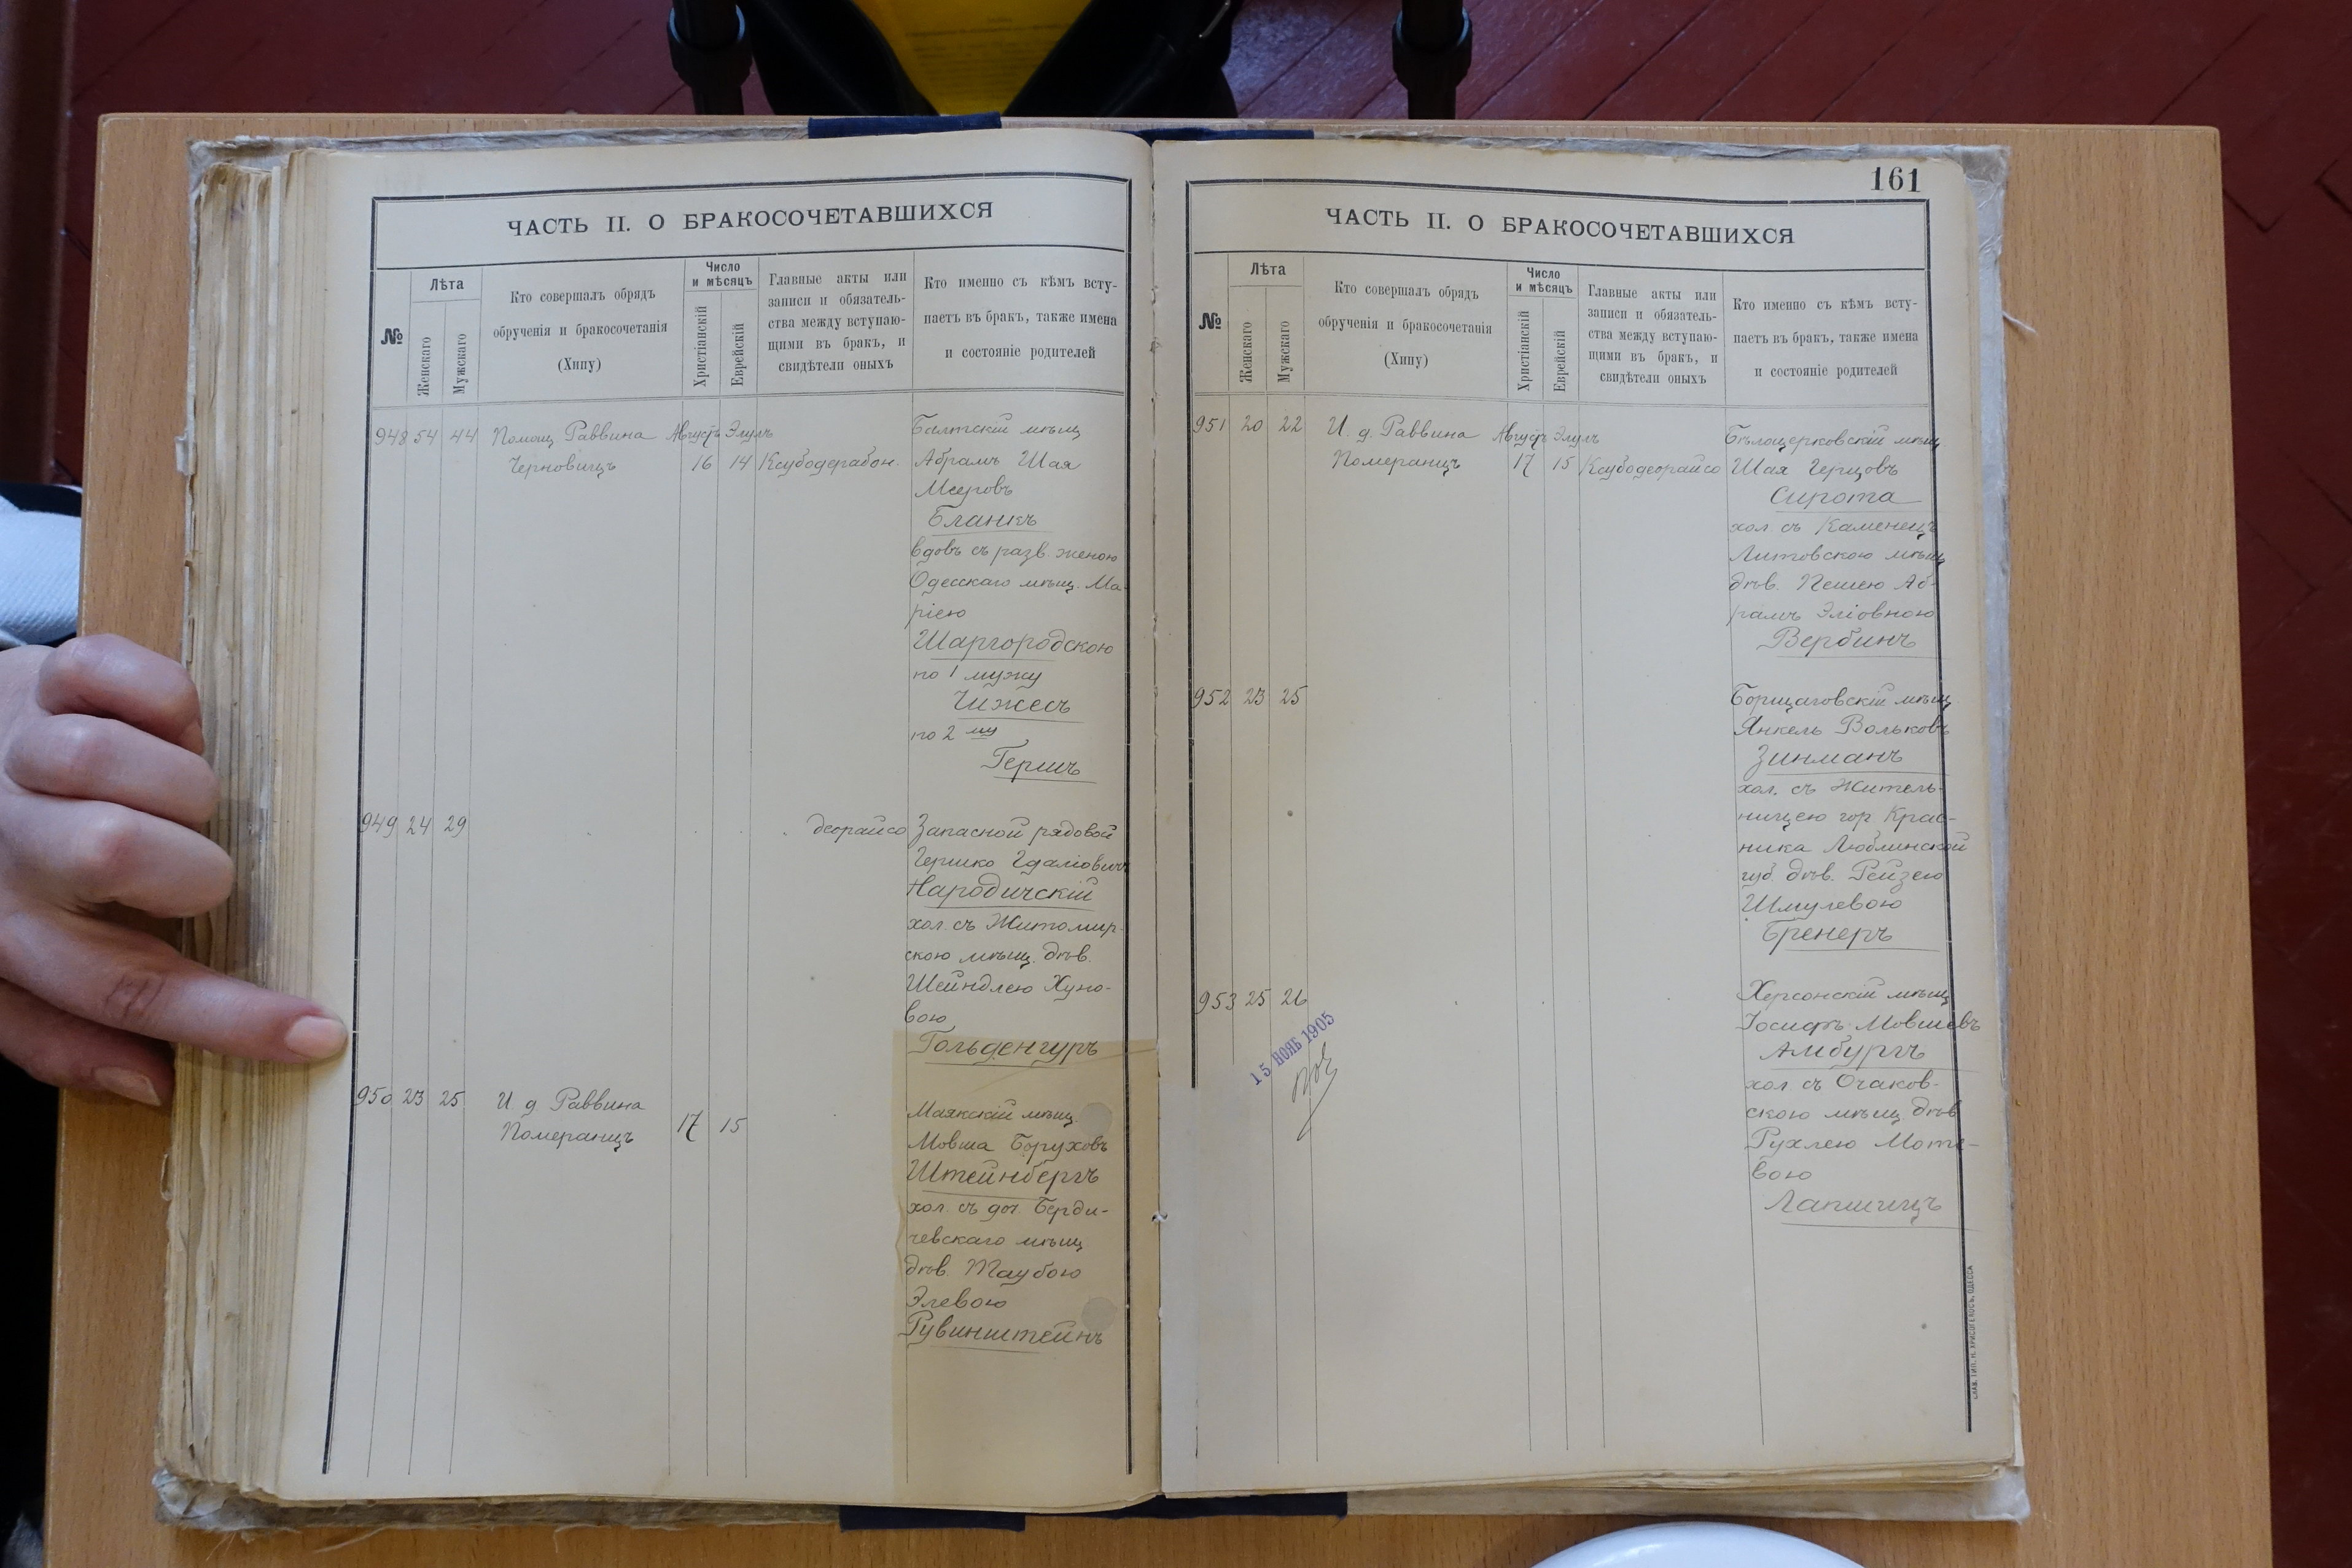 ЧАСТЬ II. О БРАКОСОЧЕТАВШИХСЯ
№
Лѣта
Женскаго
Мужскаго
Кто совершалъ обрядъ
обрученія и бракосочетанія
(Хипу)
Число
и мѣсяцъ
Христіанскій
Еврейскій
Главные акты или
записи и обязатель-
ства между вступаю-
щими въ бракъ, и
свидѣтели оныхъ
Кто именно съ кѣмъ всту-
паетъ въ бракъ, также имена
и состояніе родителей
948 54 44
Помощ Раввина
Черновицъ
Августъ Элулъ
16 14
Ксубодерабон.
Балтскій мѣщ
Абрамъ Шая
Мееровъ
Бланкъ
вдовъ съ разв. женою
Одесскаго мѣщ. Ма-
ріею
Шаргородскою
по 1 мужу
Чижесъ
по 2 му
Гершъ
949 24 29
деорайсо
Запасной рядовой
Гершко Гдаліовичъ
Народичскій
хол. съ Житомир-
скою мѣщ. дѣв.
Шейндлею Хуно-
вою
Гольденгуръ
950 23 25
И. д. Раввина
Померанцъ
17 15
Маякскій мѣщ.
Мовша Боруховъ
Штейнбергъ
хол. съ доч. Берди-
чевскаго мѣщ
дѣв. Таубою
Элевою
Рувинштейнъ
161
ЧАСТЬ II. О БРАКОСОЧЕТАВШИХСЯ
№
Лѣта
Женскаго
Мужскаго
Кто совершалъ обрядъ
обрученія и бракосочетанія
(Хипу)
Число
и мѣсяцъ
Христіанскій
Еврейскій
Главные акты или
записи и обязатель-
ства между вступаю-
щими въ бракъ, и
свидѣтели оныхъ
Кто именно съ кѣмъ всту-
паетъ въ бракъ, также имена
и состояніе родителей
951 20 22
И. д. Раввина
Померанцъ
Августъ Элулъ
17 15
Ксубодеорайсо
Бѣлоцерковскій мѣщ
Шая Герцовъ
Сирота
хол. съ Каменецъ
Литовскою мѣщ
дѣв. Пешею Аб-
рамъ Эліовною
Вербинъ
952 23 25
Борщаговскій мѣщ
Янкель Вольковъ
Зинманъ
хол. съ Житель-
ницею гор Крас-
ника Люблинской
губ. дѣв. Рейзею
Шмулевою
Бренеръ
953 25 26
Херсонскій мѣщ
Іосифъ Мовшевъ
Амбургъ
хол съ Очаков-
скою мѣщ дѣв
Рухлею Моте-
вою
Лапшицъ
15 НОЯБ 1905
СЛАВ. ТИП. Н. ХРИСОГЕЛОСЪ, ОДЕССА